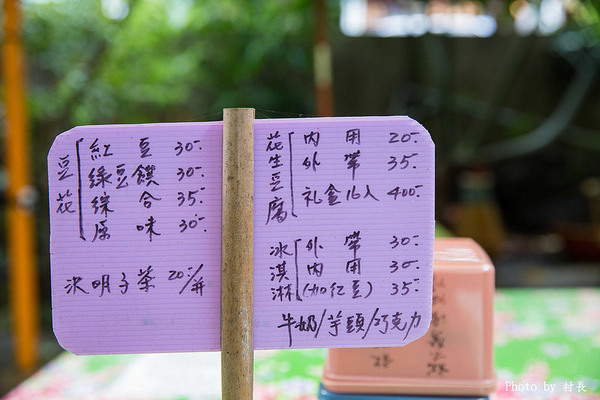 豆花
紅豆 30-
綠豆饌 30-
綜合 35-
原味 30-
決明子茶 20-/瓶
花生豆腐
內用 20-
外帶 35-
礼盒16入 400-
冰淇淋
外帶 30-
內用 30-
(加紅豆) 35-
牛奶/芋頭/巧克力
Photo by 村長